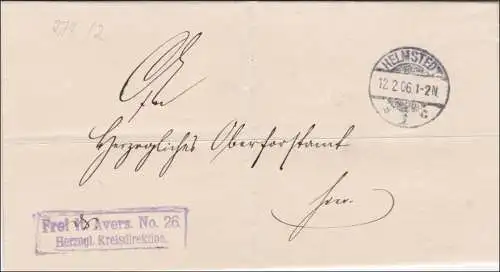 278 12
HELMSTEDT
12. 2. 06. 1-2 N.
An
Herzogliches Oberforstamt
hier.
Frei lt. Avers. No. 26.
Herzogl. Kreisdirektion.